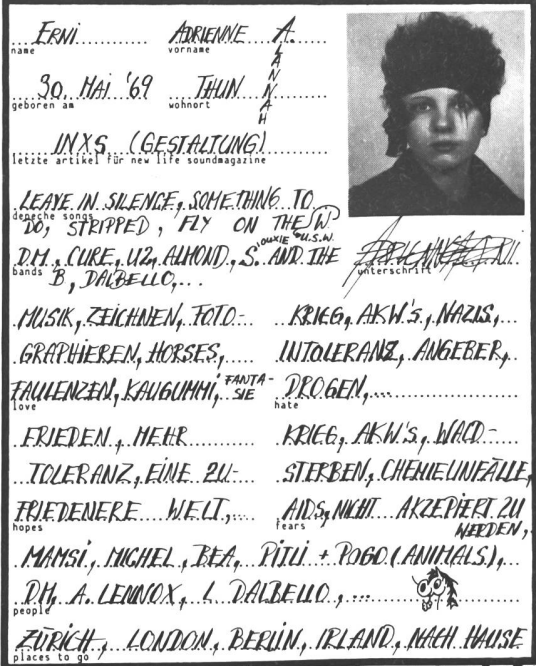 ERNI ADRIENNE A.
LANNAH
name vorname
30. MAI '69 THUN
geboren am wohnort
INXS (GESTALTUNG)
letzte artikel für new life soundmagazine
LEAVE IN SILENCE, SOMETHING TO
depeche songs
DO, STRIPPED, FLY ON THE W
D.M., CURE, U2, ALMOND, S.IOUXIE AND THE
bands
B, DALBELLO,... U.S.W.
unterschrift
MUSIK, ZEICHNEN, FOTO-
GRAPHIEREN, HORSES,
FAULENZEN, KAUGUMMI, FANTA-
SIE
love
KRIEG, AKW'S, NAZIS,
INTOLERANZ, ANGEBER,
DROGEN,...
hate
FRIEDEN, MEHR
TOLERANZ, EINE ZU-
FRIEDENERE WELT,...
hopes
KRIEG, AKW'S, WALD-
STERBEN, CHEMIEUNFÄLLE,
AIDS, NICHT AKZEPIERT ZU
WERDEN,
fears
MAMSI, MICHEL, BEA, PITLI + POGO (ANIMALS),
DM, A. LENNOX, L. DALBELLO, ...
people
ZÜRICH, LONDON, BERLIN, IRLAND, NACH HAUSE
places to go